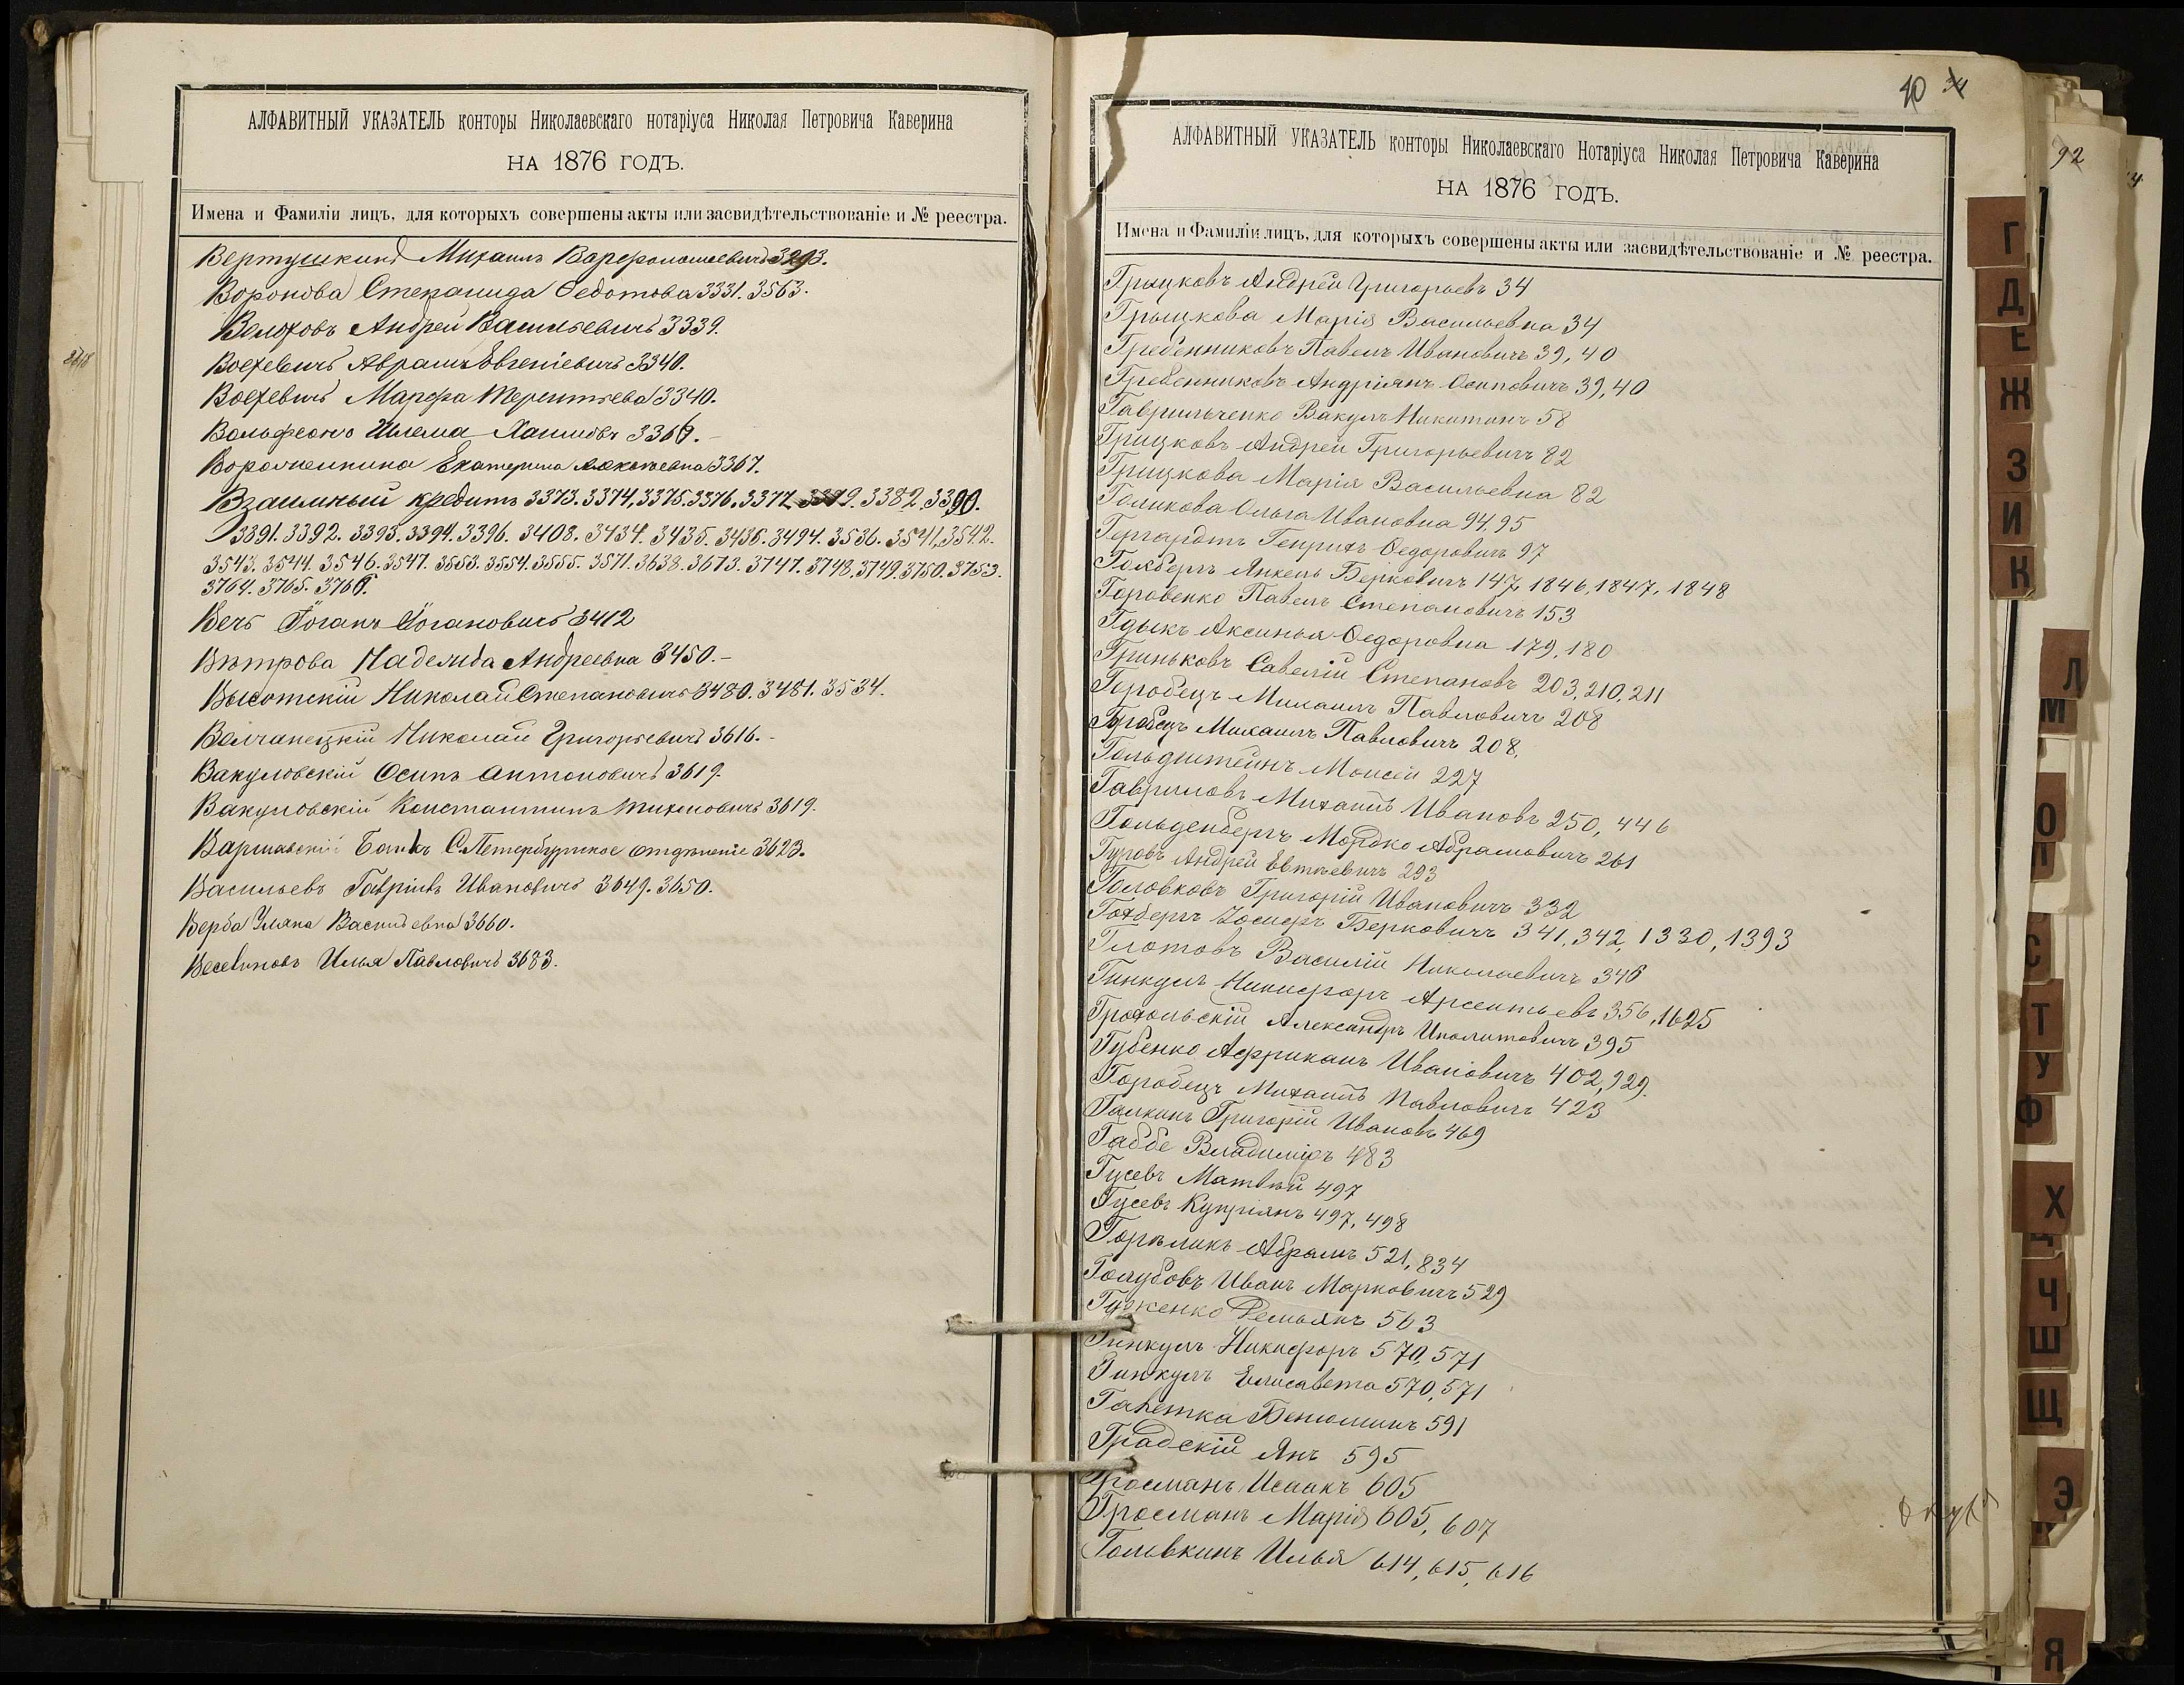 АЛФАВИТНЫЙ УКАЗАТЕЛЬ конторы Николаевскаго нотаріуса Николая Петровича Каверина
НА 1876 ГОДЪ.
Имена и Фамиліи лицъ, для которыхъ совершены акты или засвидѣтельствованіе и № реестра.
Вертушкинъ Михаилъ Варфоломеевичъ 3293.
Воронова Степанида Федотова 3331. 3563.
Андрей Васильевичъ 3339.
Воехевичъ Аврамъ Евгеніевичъ 3340.
Воехевичъ Марфа Терентьева 3340.
Вольфсонъ Шлема Хаимовъ 3367.
Екатерина Алексѣевна 3367.
Взаимный кредитъ 3373. 3374. 3375. 3376. 3377. 3379. 3382. 3390.
3391. 3392. 3393. 3394. 3396. 3408. 3434. 3435. 3436. 3494. 3536. 3541. 3542.
3543. 3544. 3546. 3547. 3553. 3554. 3555. 3571. 3638. 3673. 3747. 3748. 3749. 3750. 3753.
3764. 3765. 3766.
Вечъ Іоганъ Іогановичъ 3412
Вѣтрова Надежда Андреевна 3450.-
Высотскій Николай Степановичъ 3480. 3481. 3534.
Волчанецкій Николай Григорьевичъ 3616.-
Вакуловскій Осипъ Антоновичъ 3619.
Вакуловскій Константинъ Тихоновичъ 3619.
Варшавскій Банкъ С.Петербургское отдѣленіе 3623.
Васильевъ Гавріилъ Ивановичъ 3649. 3650.
Верба Уляна Васильевна 3660.
Веселиновъ Илья Павловичъ 3683.
40 34
АЛФАВИТНЫЙ УКАЗАТЕЛЬ конторы Николаевскаго Нотаріуса Николая Петровича Каверина
НА 1876 ГОДЪ.
Имена и Фамиліи лицъ, для которыхъ совершены акты или засвидѣтельствованіе и № реестра.
Грицковъ Андрей Григорьевъ 34
Грицкова Марія Васильевна 34
Гребенниковъ Павелъ Ивановичъ 39, 40
Гребенниковъ Андріянъ Осиповичъ 39, 40
Гаврильченко Вакулъ Никитинъ 58
Грицковъ Андрей Григорьевичъ 82
Грицкова Марія Васильевна 82
Голикова Ольга Ивановна 94, 95
Гергардтъ Генрихъ Федоровичъ 97
Гохбергъ Янкель Берковичъ 147, 1846, 1847, 1848
Горовенко Павелъ Степановичъ 153
Гдыкъ Аксинья Федоровна 179, 180
Гриньковъ Савелій Степановъ 203, 210, 211
Горобецъ Михаилъ Павловичъ 208
Горобецъ Михаилъ Павловичъ 208.
Гольдштейнъ Моисей 227
Гавриловъ Михаилъ Ивановъ 250, 446
Гольденбергъ Мордко Абрамовичъ 261
Гуровъ Андрей Евтѣевичъ 293
Головковъ Григорій Ивановичъ 332
Гохбергъ Іосифъ Берковичъ 341, 342, 1330, 1393
Глотовъ Василій Николаевичъ 346
Гинкулъ Никифоръ Арсентьевъ 356, 1625
Грохольскій Александръ Иполитовичъ 395
Губенко Африканъ Ивановичъ 402, 929.
Горобецъ Михаилъ Павловичъ 423
Галкинъ Григорій Ивановъ 469
Габбе Владиміръ 483
Гусевъ Матвѣй 497
Гусевъ Купріянъ 497, 498
Горѣликъ Абрамъ 521, 834
Голубовъ Иванъ Марковичъ 529
Гуженко Демьянъ 563
Гинкулъ Никифоръ 570, 571
Гинкулъ Елисавета 570, 571
Бенюминъ 591
Градскій Янъ 595
Гросманъ Исаакъ 605
Гросманъ Марія 605, 607
Голивкинъ Илья 614, 615, 616
92
Г
Д
Е
Ж
З
И
К
Л
М
О
П
С
Т
У
Ф
Х
Ц
Ч
Ш
Щ
Э
Я